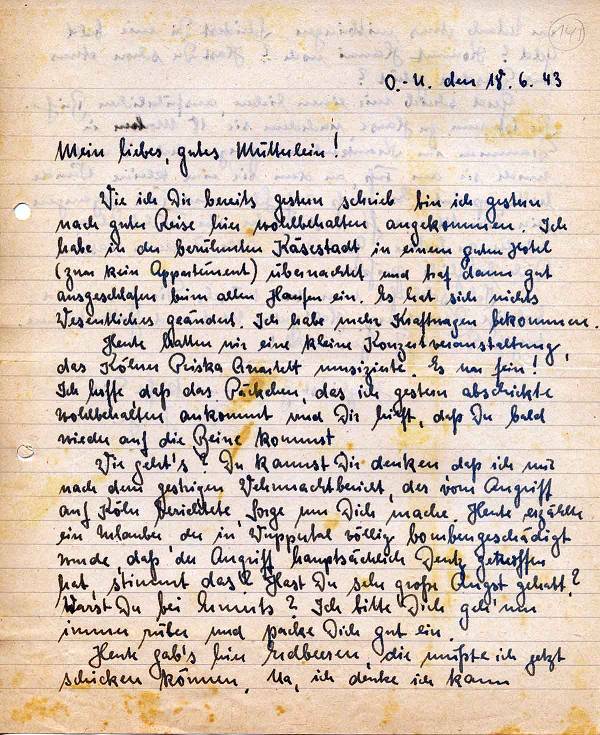 141
O.-U. den 18.6.43
Mein liebes, gutes Mütterlein!
Wie ich Dir bereits gestern schrieb bin ich gestern
nach guter Reise hier wohlbehalten angekommen. Ich
habe in der berühmten Käsestadt in einem guten Hotel
(zwar kein Appartement) übernachtet und traf dann gut
ausgeschlafen beim alten Haufen ein. Es hat sich nichts
Wesentliches geändert. Ich habe mehr Kraftwagen bekommen.
Heute hatten wir eine kleine Konzertveranstaltung,
das Kölner Priska Quartett musizierte. Es war fein!
Ich hoffe, daß das Päckchen, das ich gestern abschickte
wohlbehalten ankommt und Dir hilft, daß Du bald
wieder auf die Beine kommst
Wie geht's? Du kannst Dir denken daß ich mir
nach dem gestrigen Wehrmachtbericht, der vom Angriff
auf Köln berichtete, Sorge um Dich mache. Heute erzählte
ein Urlauber der in Wuppertal völlig bombengeschädigt
wurde, daß der Angriff hauptsächlich Deutz getroffen
hat, stimmt das? Hast Du sehr große Angst gehabt?
Warst Du bei ? Ich bitte Dich geh' nur
immer rüber und packe Dich gut ein.
Heute gab's hier Erdbeeren, die müßte ich jetzt
schicken können. Na, ich denke ich kann